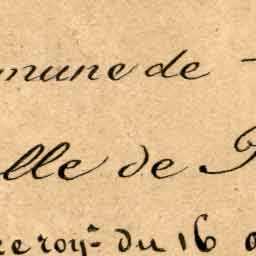 mune de
lle de
roy. du 16